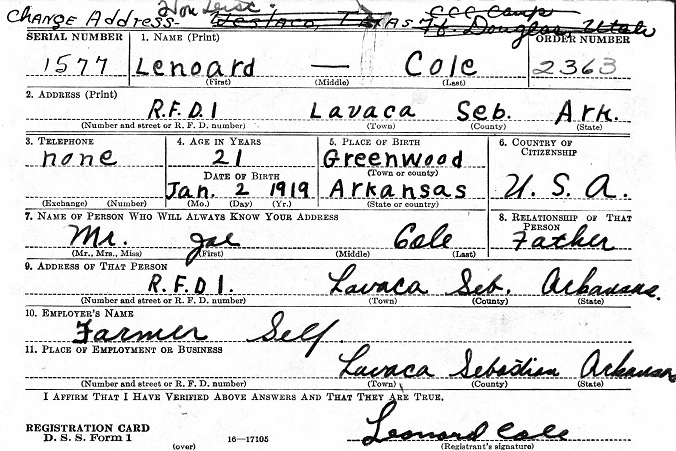 CCC Camp
CHANGE Address- Weslaco, Texas Ft. Douglas, Utah
SERIAL NUMBER 1. NAME (Print) ORDER NUMBER
1577 Lenoard — Cole 2363
(First) (Middle) (Last)
2. ADDRESS (Print)
R.F.D.1 Lavaca Seb. Ark.
(Number and street or R. F. D. number) (Town) (County) (State)
3. TELEPHONE 4. AGE IN YEARS 5. PLACE OF BIRTH 6. COUNTRY OF
CITIZENSHIP
none 21 Greenwood
(Town or county)
DATE OF BIRTH
Jan. 2 1919 Arkansas U.S.A.
(Exchange) (Number) (Mo.) (Day) (Yr.) (State or country)
7. NAME OF PERSON WHO WILL ALWAYS KNOW YOUR ADDRESS 8. RELATIONSHIP OF THAT
PERSON
Mr. Joe Cole Father
(Mr., Mrs., Miss) (First) (Middle) (Last)
9. ADDRESS OF THAT PERSON
R.F.D.1. Lavaca Seb. Arkansas.
(Number and street or R. F. D. number) (Town) (County) (State)
10. EMPLOYER'S NAME
Farmer Self
11. PLACE OF EMPLOYMENT OR BUSINESS
Lavaca Sebastian Arkansas
(Number and street or R. F. D. number) (Town) (County) (State)
I AFFIRM THAT I HAVE VERIFIED ABOVE ANSWERS AND THAT THEY ARE TRUE.
REGISTRATION CARD
D. S. S. Form 1 Leonard Cole
(over) 16—17105 (Registrant's signature)